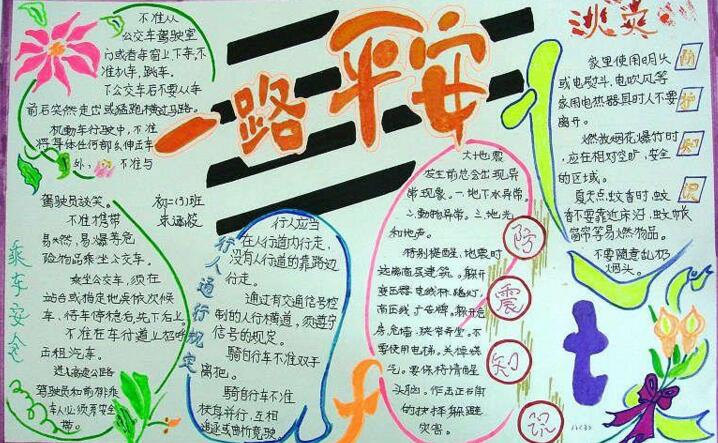 一路平安
不准从
公交车驾驶室
门或者车窗上下车,不
准扒车,跳车。
下公交车后不要从车
前后突然走出或猛跑横过马路。
机动车行驶中,不准
将身体任何部分伸出车
外, 不准与
驾驶员谈笑。
初二(5)班
不准携带
易燃,易爆等危
险物品乘坐公交车。
乘坐公交车,须在
站台或指定地点依次候
车,待车停稳后,先下后上。
不准在车行道上招呼
出租汽车。
进入高速公路
驾驶员和前排乘
车人必须系安全
带。
乘车安全
行人通行规定
行人应当
在人行道内行走,
没有人行道的靠路边
行走。
通过有交通信号控
制的人行横道,须遵守
信号的规定。
骑自行车不准双手
离把。
骑自行车不准
扶身并行,互相
追逐或曲折竞驶。
大地震
发生前总会出现异
常现象。一.地下水异常。
二.动物异常。三.地光
和地声。
特别提醒,地震时
远离高层建筑。躲开
变压器,电线杆,路灯,
高压线,广告牌。躲开危
房,危墙,狭窄弄堂。不
要使用电梯。关掉煤
气。要保持清醒
头脑。作出正确
的抉择躲避
灾害。
防
震
知
识
家里使用明火
或电熨斗,电吹风等
家用电热器具时人不要
离开。
燃放烟花爆竹时,
应在相对空旷,安全
的区域。
夏天点蚊香时,蚊
香不要靠近床沿,蚊帐
窗帘等易燃物品。
不要随意乱扔
烟头。
防
护
知
识